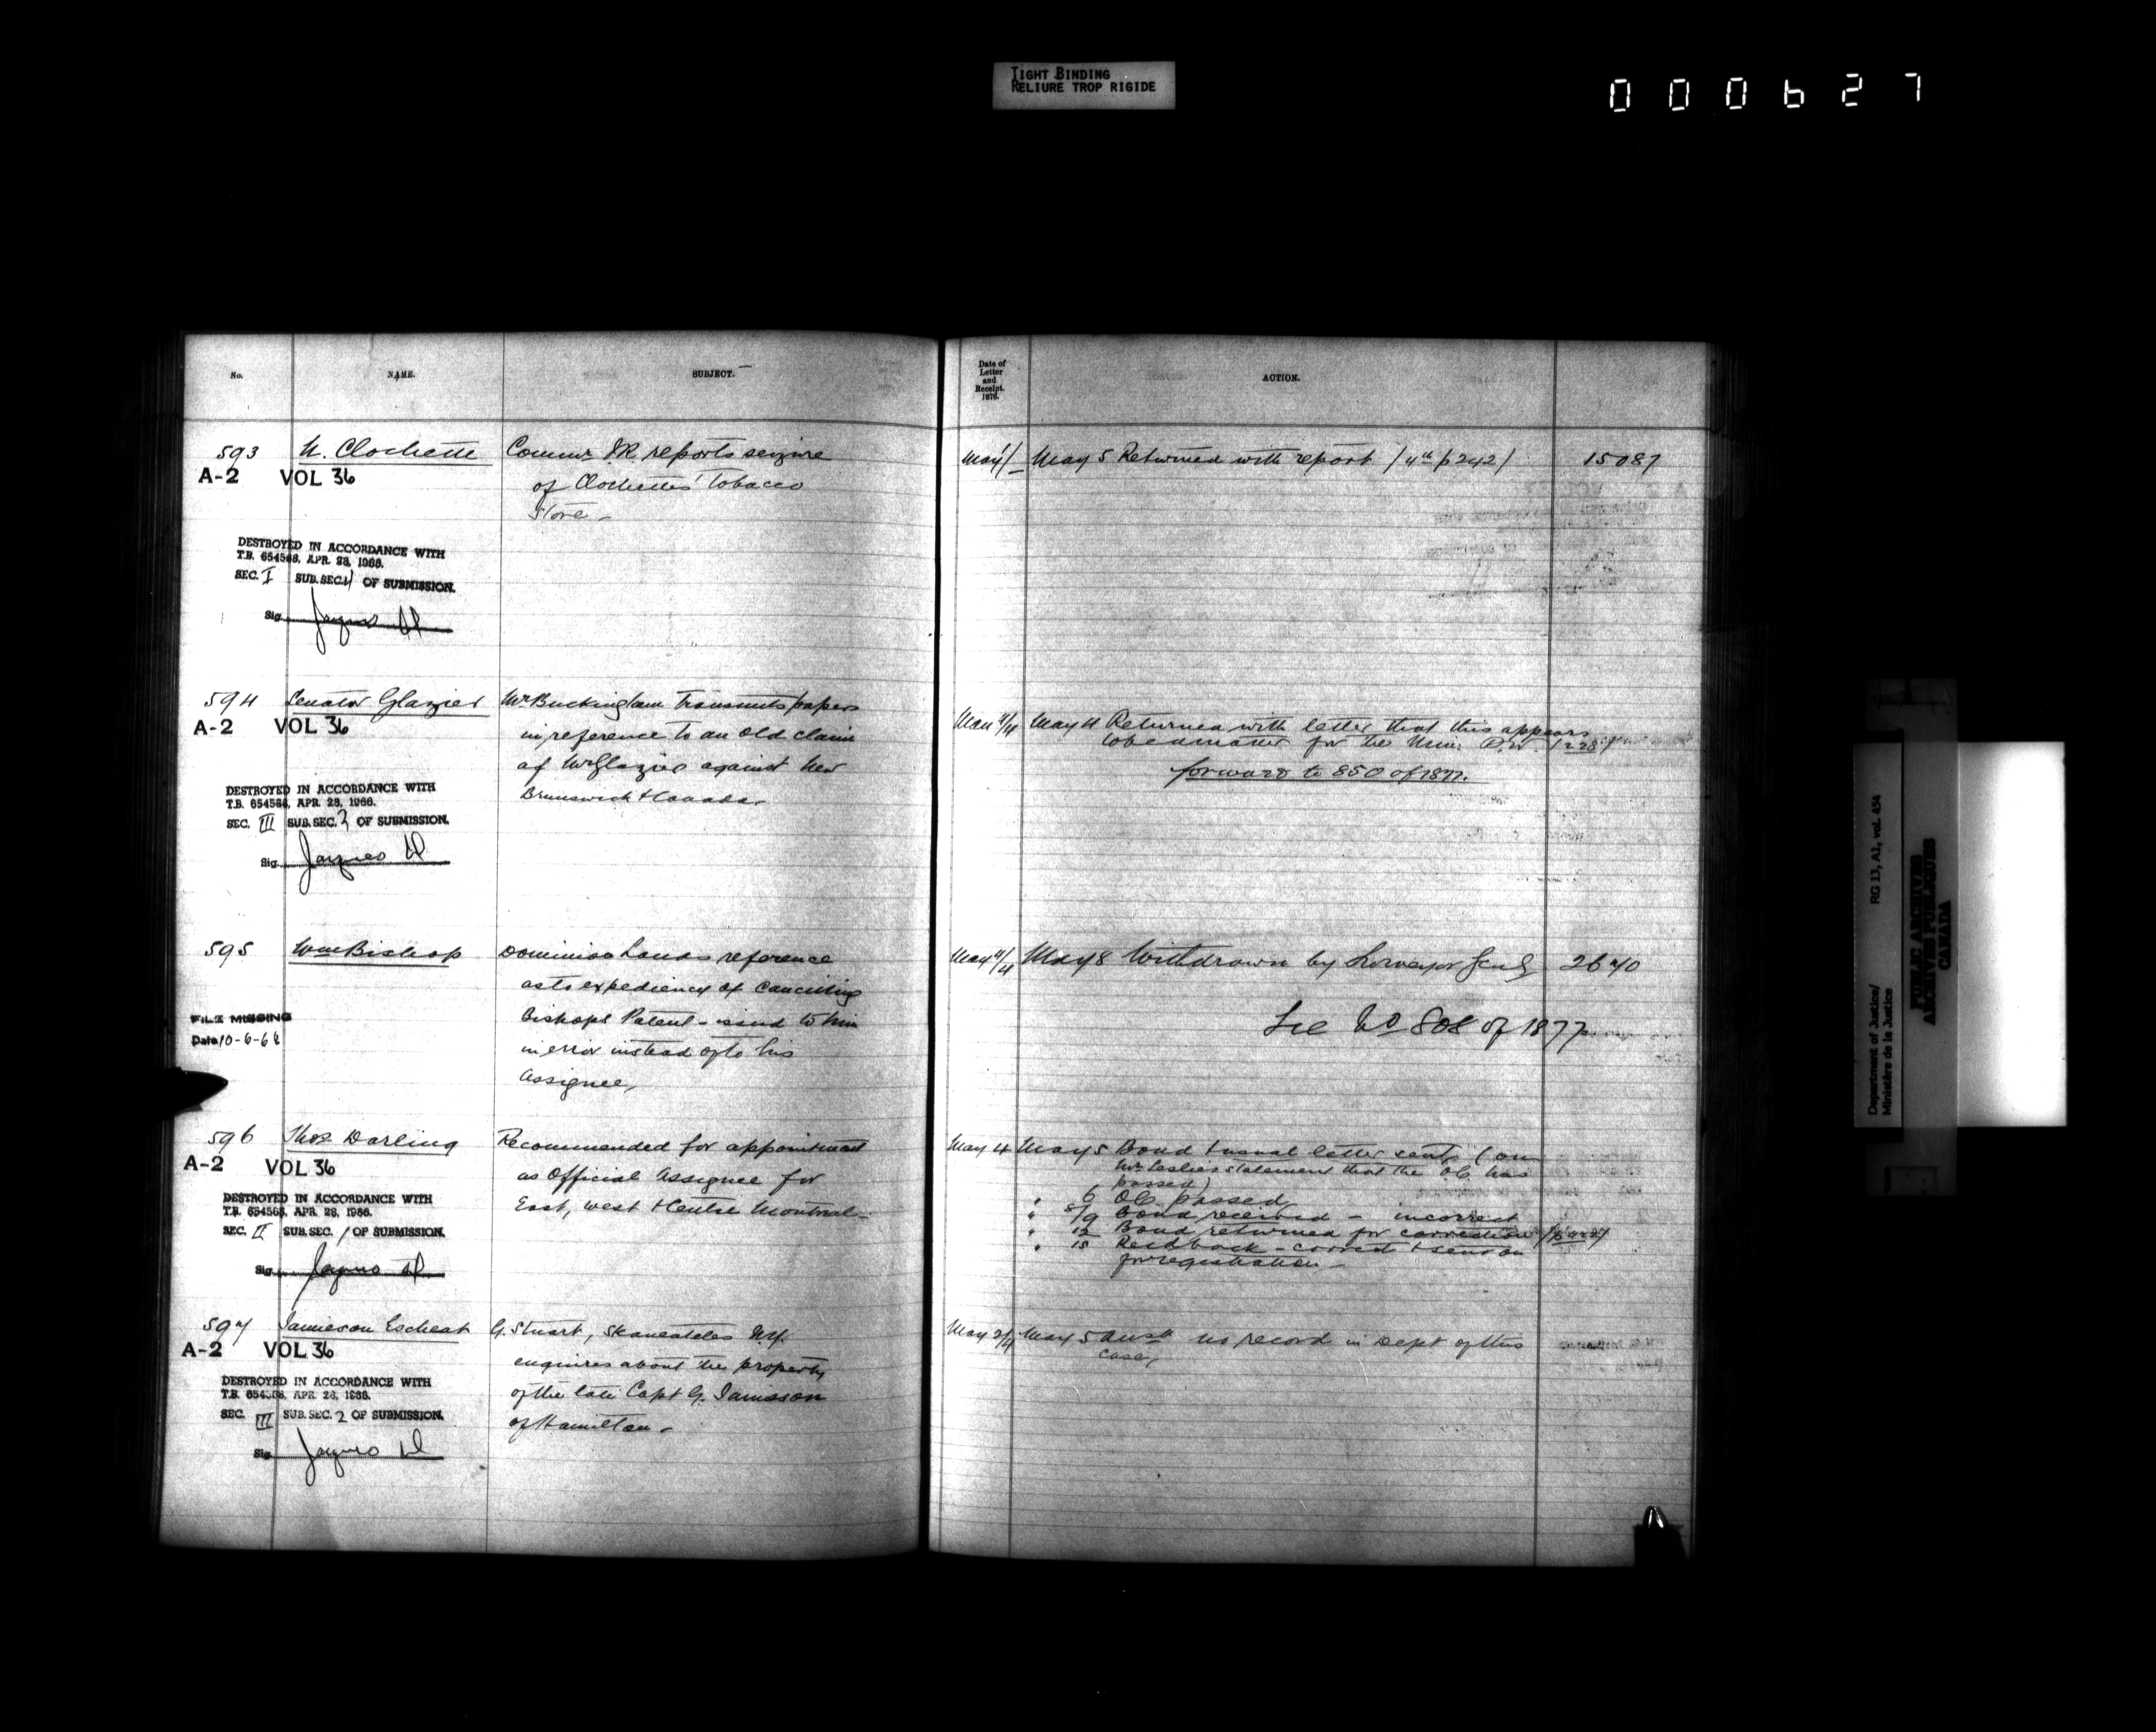 TIGHT BINDING
RELIURE TROP RIGIDE
000627
No.
NAME.
SUBJECT.
593
N. Clochette
Commr I.R. reports seizure
of Clochettes' Tobacco
Store -
A-2 VOL 36
DESTROYED IN ACCORDANCE WITH
T.B. 654568, APR. 28, 1966.
SEC. I SUB. SEC. 4 OF SUBMISSION.
Sig.
594
Senator Glazier
Mr Buckingham transmits papers
in reference to an old claim
of Mr Glazier against New
Brunswick & Canada -
A-2 VOL 36
DESTROYED IN ACCORDANCE WITH
T.B. 654568, APR. 28, 1966.
SEC. III SUB. SEC. 2 OF SUBMISSION.
Sig. Jacques
595
Wm Bishop
Dominion Lands reference
as to expediency of cancelling
Bishops Patent - issued to him
in error instead of to his
Assignee,
FILE MISSING
Date 10-6-68
596
Thos Darling
Recommended for appointment
as Official Assignee for
East, West & Centre Montreal -
A-2 VOL 36
DESTROYED IN ACCORDANCE WITH
T.B. 654568, APR. 28, 1966.
SEC. II SUB. SEC. 1 OF SUBMISSION.
Sig. Jacques
597
Jamieson Escheat
G. Stuart, Skaneateles N.Y.
enquires about the property
of the late Capt G. Jamieson
of Hamilton -
A-2 VOL 36
DESTROYED IN ACCORDANCE WITH
T.B. 654568, APR. 28, 1966.
SEC. III SUB. SEC. 2 OF SUBMISSION.
Sig. Jacques
Date of
Letter
and
Receipt.
1876.
ACTION.
May 1/- May 5 Returned with report /4th p 242/ 15087
May 4/4 May 4 Returned with letter that this appears
to be a matter for the Min: P.W. /228/
forward to 850 of 1877.
May 4/4 May 8 Withdrawn by Surveyor Genl 2640
See No 808 of 1877
May 4 May 5 Bond & usual letter sent (on
Mr Leslie's statement that the O.C. has
passed)
" 6 O.C. passed
" 8/9 Bond received - incorrect
" 12 Bond returned for correction
" 15 Recd back - correct & sent on
for registration -
May 2/4 May 5 Ansd no record in Dept of this
case,
Department of Justice/
Ministère de la Justice
RG 13, A1, vol. 454
PUBLIC ARCHIVES
ARCHIVES PUBLIQUES
CANADA